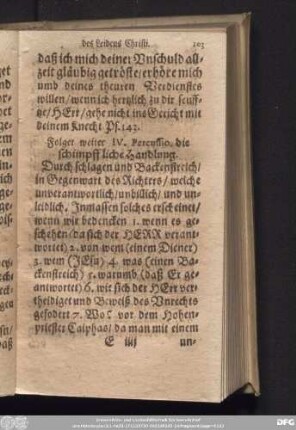 des Leidens Christi. 103
daß ich mich deiner Vnschuld all-
zeit gläubig getröste/ erhöre mich
umb deines theuren Verdienstes
willen/ wenn ich hertzlich zu dir seuff-
tze/ HErr/ gehe nicht ins Gericht mit
deinem Knecht Ps. 143.
Folget weiter IV. Percussio, die
schimpffliche Handlung.
Durch schlagen und Backenstreich/
in Gegenwart des Richters/ welche
unverantwortlich/ unbillich/ und un-
leidlich. Inmassen solches erscheinet/
wenn wir bedencken 1. wenn es ge-
schehen (da sich der HERR verant-
wortet) 2. von wem (einem Diener)
3. wem (JEsu) 4. was (einen Ba-
ckenstreich) 5. warumb (daß Er ge-
antwortet) 6. wie sich der HErr ver-
theidiget und Beweiß des Vnrechts
gefodert 7. Wo? vor dem Hohen-
priester Caiphas/ da man mit einem
E iiij un-
DFG